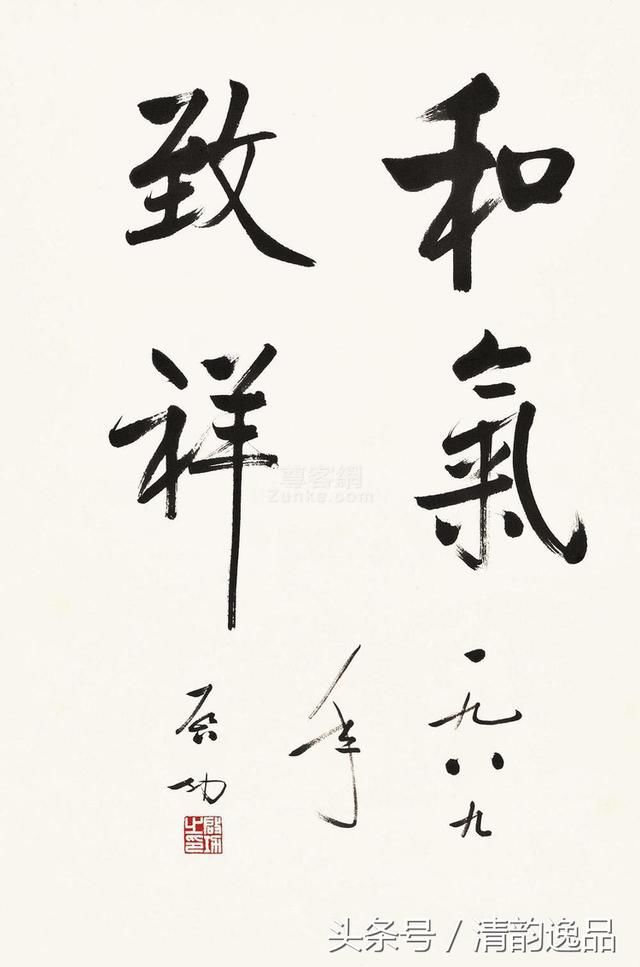 和氣
致祥
一九八九
年
启功
啟功之印
尊客網
Zunke.com
头条号 / 清韵逸品